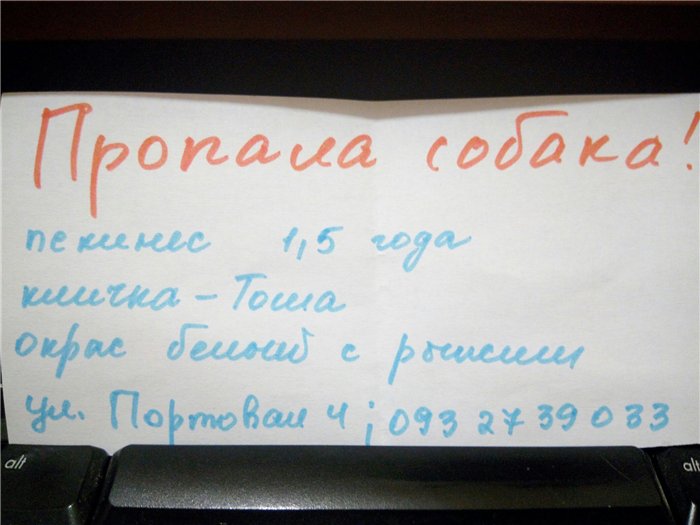 Пропала собака!
пекинес 1,5 года
кличка - Тоша
окрас белый с рыжим
ул. Портовая 4; 093 27 39 033
alt
alt